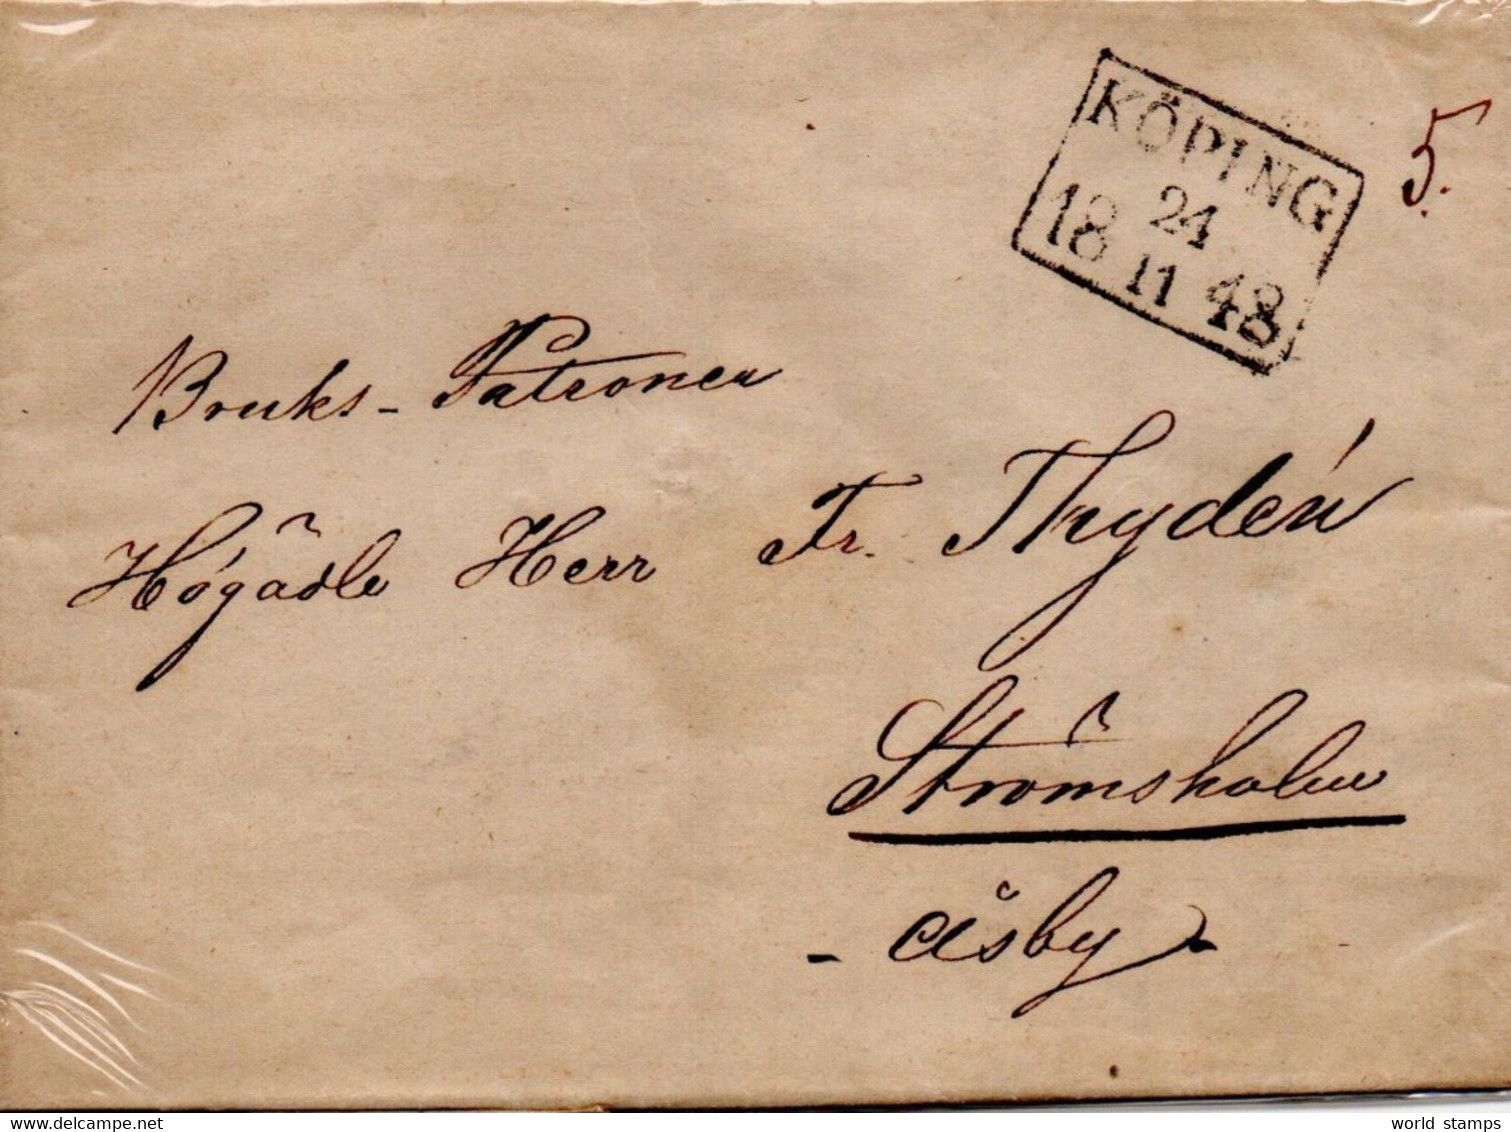 KÖPING
24
18 11 48
5.
Bruks-Patronen
Högädle Herr Fr. Thydén
Strömsholm
- Åsby -
world stamps